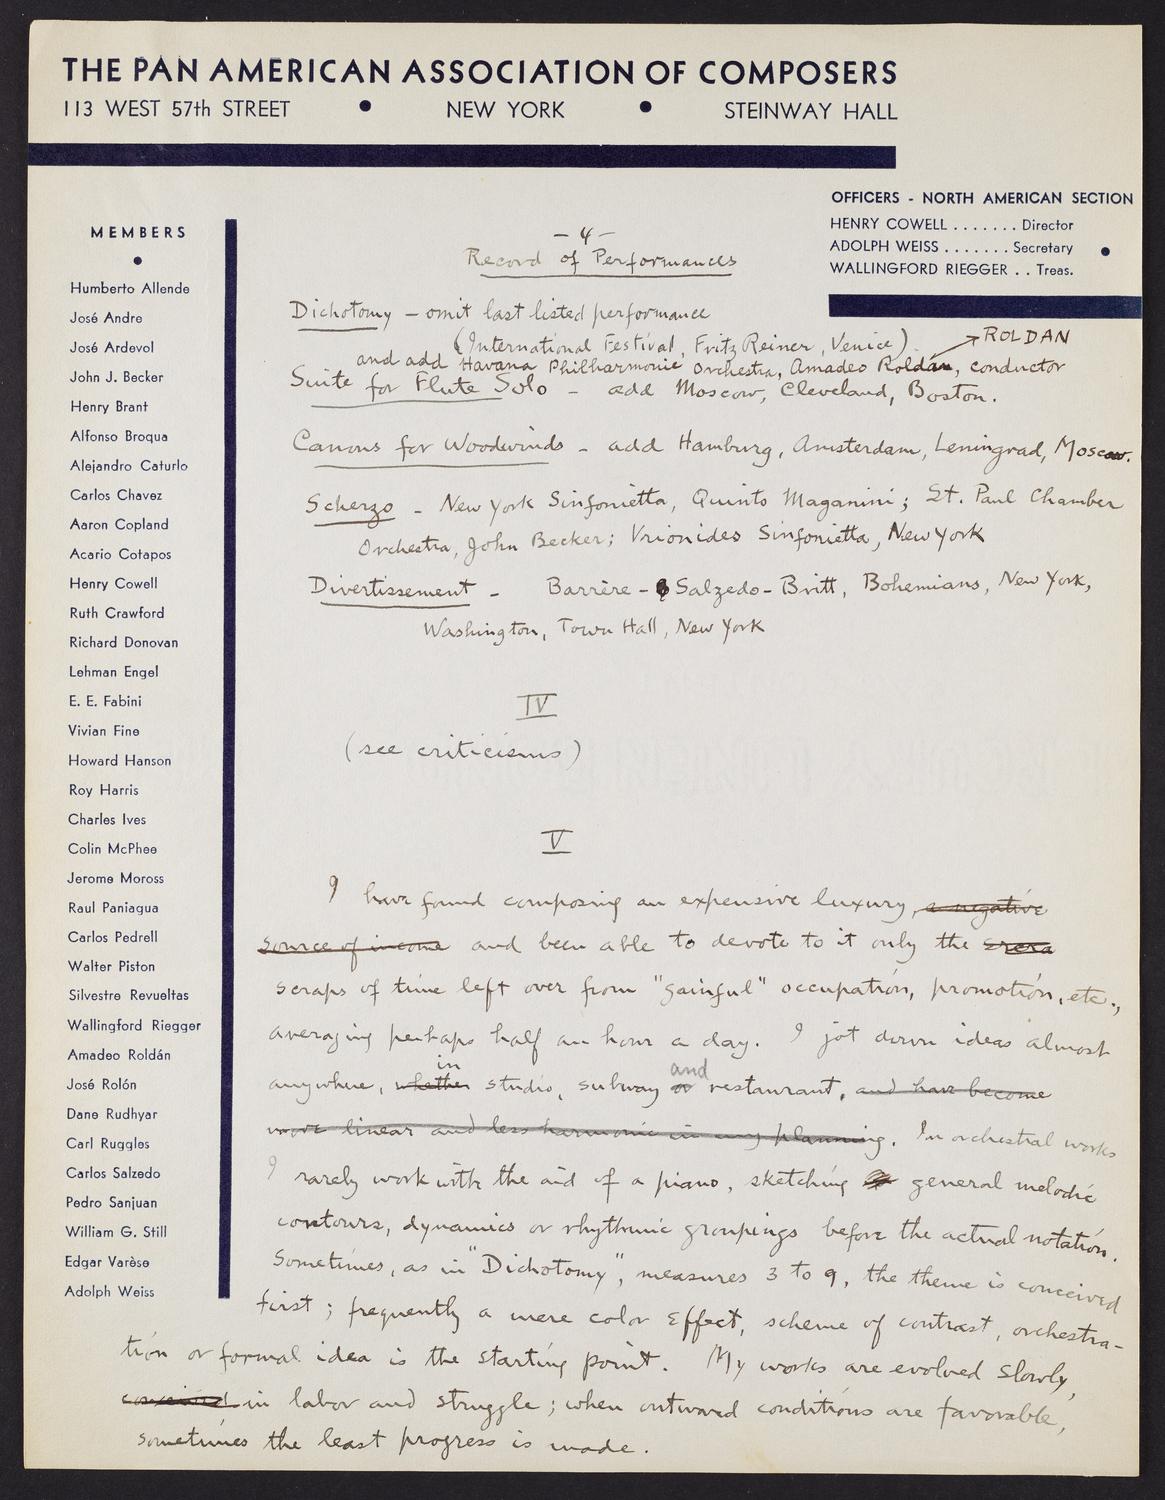 THE PAN AMERICAN ASSOCIATION OF COMPOSERS
113 WEST 57th STREET • NEW YORK • STEINWAY HALL
OFFICERS - NORTH AMERICAN SECTION
HENRY COWELL . . . . . . . Director
ADOLPH WEISS . . . . . . . Secretary •
WALLINGFORD RIEGGER . . Treas.
MEMBERS
•
Humberto Allende
José Andre
José Ardevol
John J. Becker
Henry Brant
Alfonso Broqua
Alejandro Caturlo
Carlos Chavez
Aaron Copland
Acario Cotapos
Henry Cowell
Ruth Crawford
Richard Donovan
Lehman Engel
E. E. Fabini
Vivian Fine
Howard Hanson
Roy Harris
Charles Ives
Colin McPhee
Jerome Moross
Raul Paniagua
Carlos Pedrell
Walter Piston
Silvestre Revueltas
Wallingford Riegger
Amadeo Roldán
José Rolón
Dane Rudhyar
Carl Ruggles
Carlos Salzedo
Pedro Sanjuan
William G. Still
Edgar Varèse
Adolph Weiss
- 4 -
Record of Performances
Dichotomy - omit last listed performance
(International Festival, Fritz Reiner, Venice)
ROLDAN
and add Havana Philharmonic Orchestra, Amadeo Roldán, conductor
Suite for Flute Solo - add Moscow, Cleveland, Boston.
Canons for Woodwinds - add Hamburg, Amsterdam, Leningrad, Moscow.
Scherzo - New York Sinfonietta, Quinto Maganini; St. Paul Chamber
Orchestra, John Becker; Vrionides Sinfonietta, New York
Divertissement - Barrère - Salzedo - Britt, Bohemians, New York,
Washington, Town Hall, New York
IV
(see criticisms)
V
I have found composing an expensive luxury, a negative
source of income and been able to devote to it only the
scraps of time left over from "gainful" occupation, promotion, etc.,
averaging perhaps half an hour a day. I jot down ideas almost
in and
anywhere, whether studio, subway or restaurant, and have become
more linear and less harmonic in my planning. In orchestral works
I rarely work with the aid of a piano, sketching general melodic
contours, dynamics or rhythmic groupings before the actual notation.
Sometimes, as in "Dichotomy", measures 3 to 9, the theme is conceived
first; frequently a mere color effect, scheme of contrast, orchestra-
tion or formal idea is the starting point. My works are evolved slowly,
conceived in labor and struggle; when outward conditions are favorable,
sometimes the least progress is made.